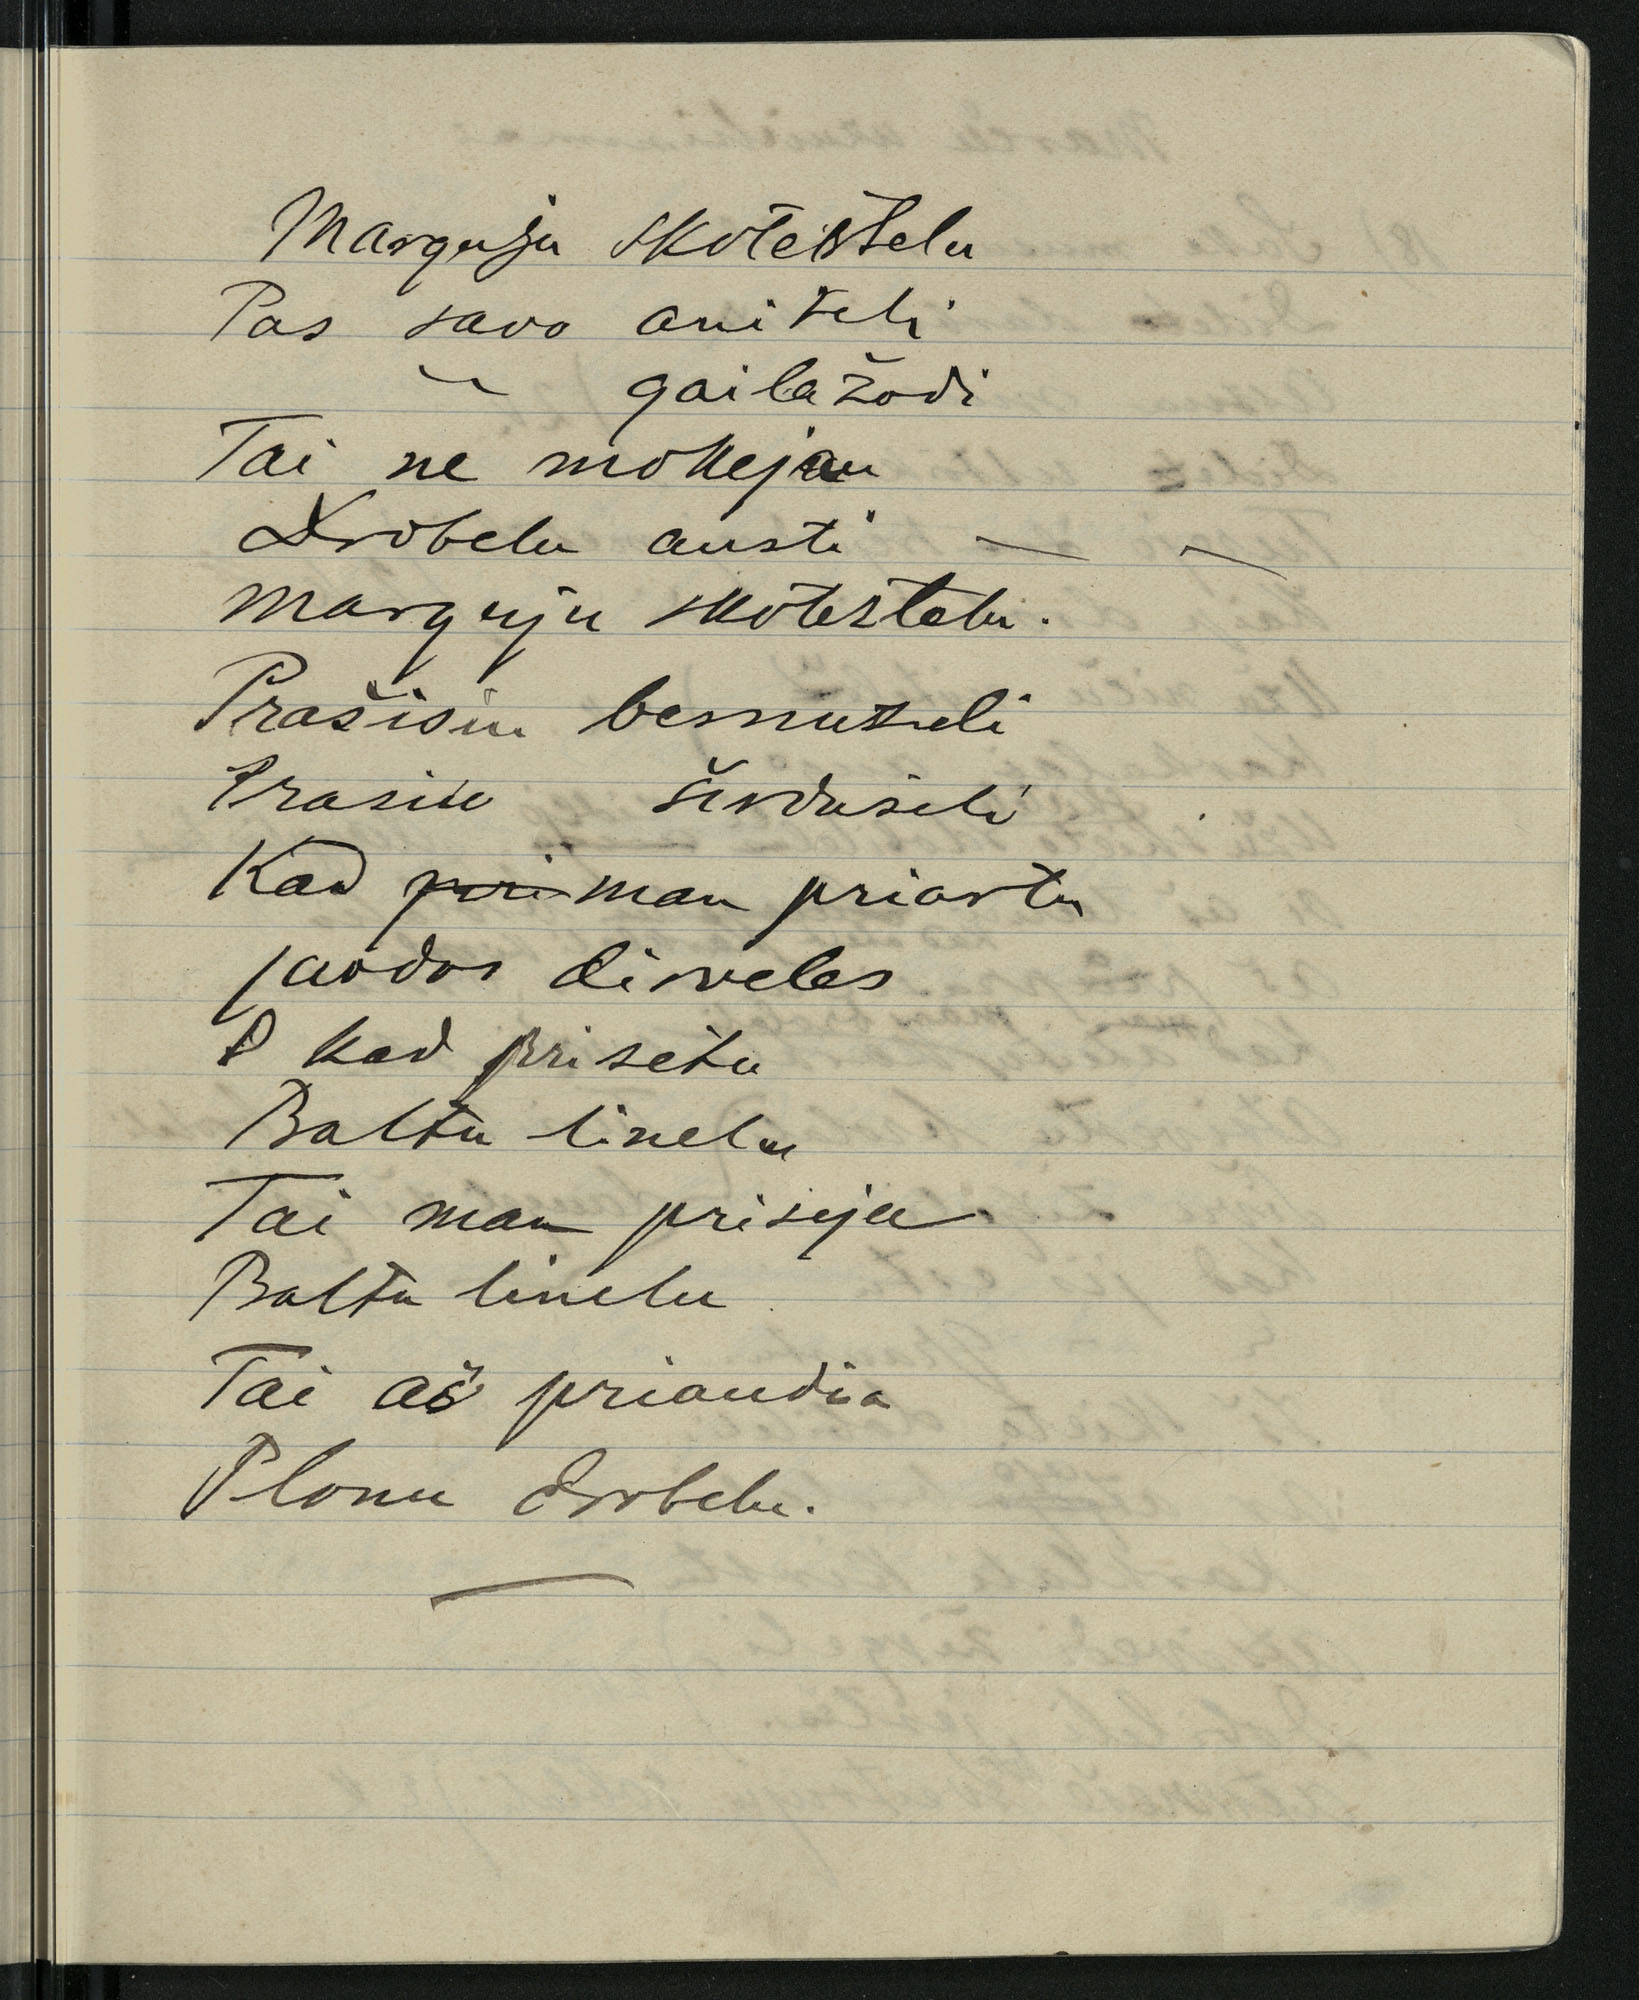 Marguju skotèrtelu
Pas savo aniteli
〃 gailažodi
Tai ne mokejau
Drobelu austi — —
Marguju skotertelu.
Prašisiu bernuzeli
Prasiu širduseli
Kad pri man priartu
juodos dirveles
O kad prisetu
Baltu linelu
Tai man priseja
Baltu linelu
Tai aš priaudia
Plonu drobelu.